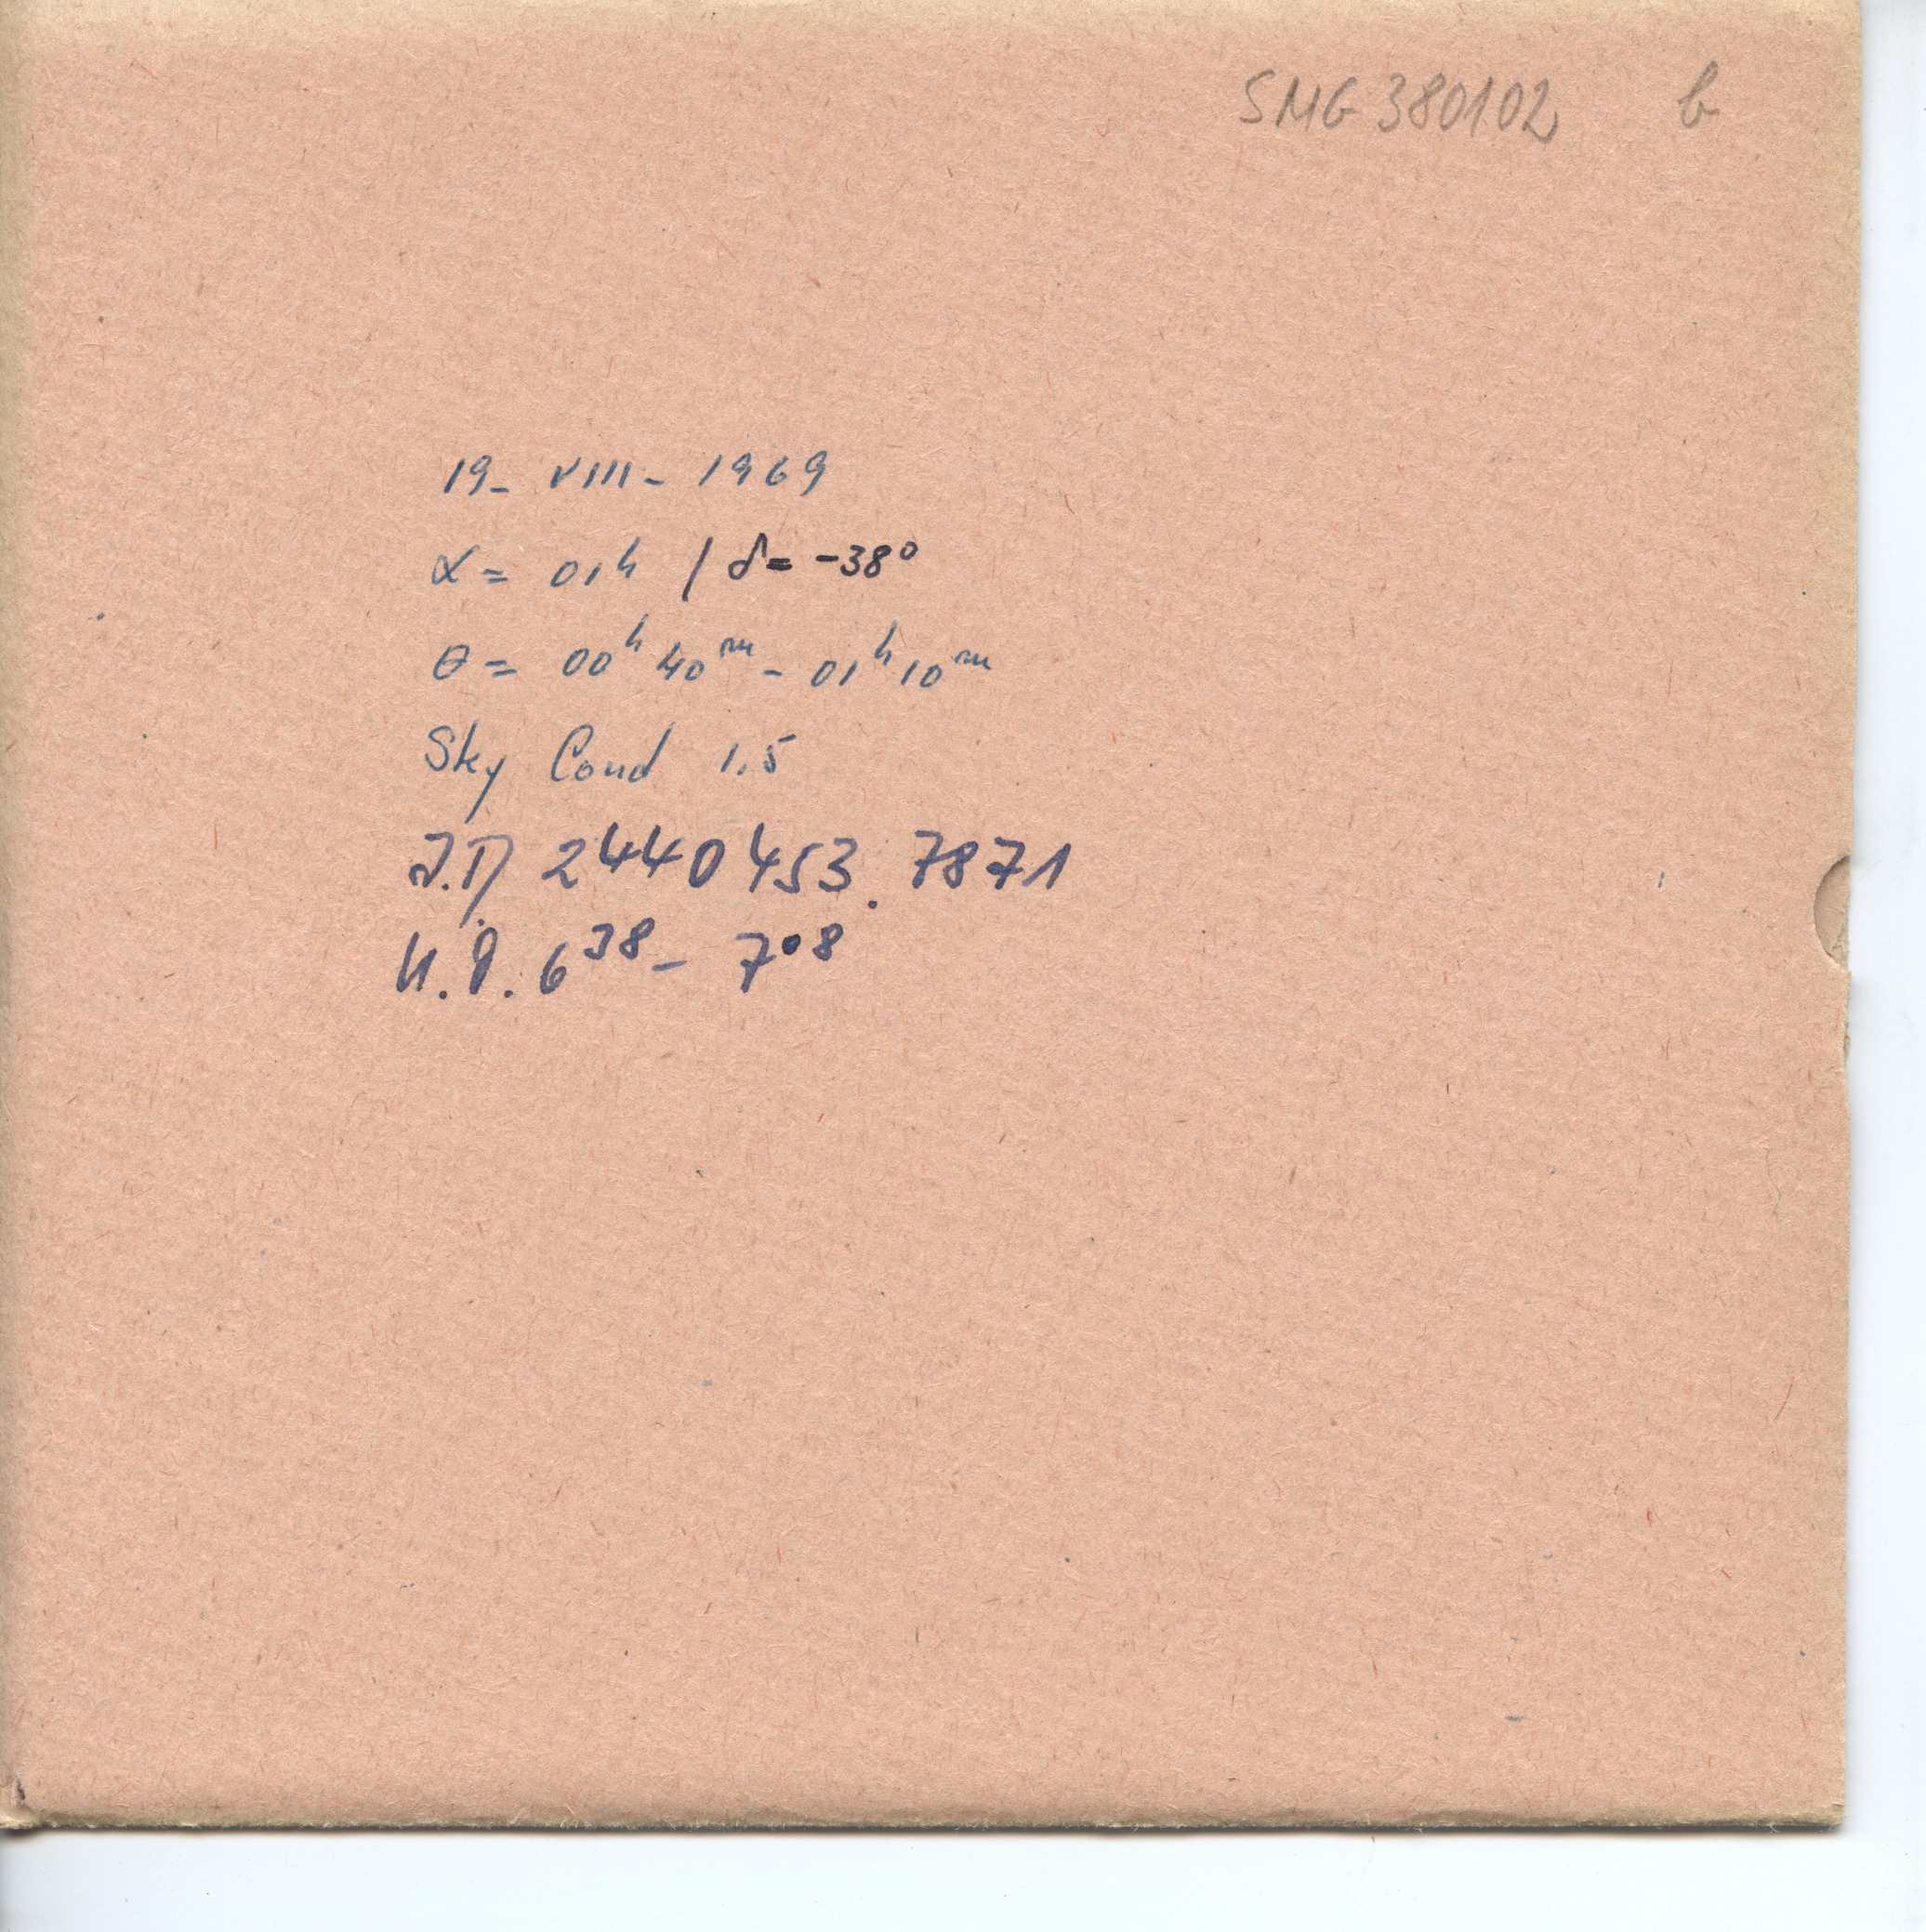 SMG 380102 b
19- VIII- 1969
α = 01ʰ / δ = -38°
θ = 00ʰ 40ᵐ - 01ʰ 10ᵐ
Sky Cond 1.5
J.D 2440453.7871
U.T. 6³⁸ - 7⁰⁸